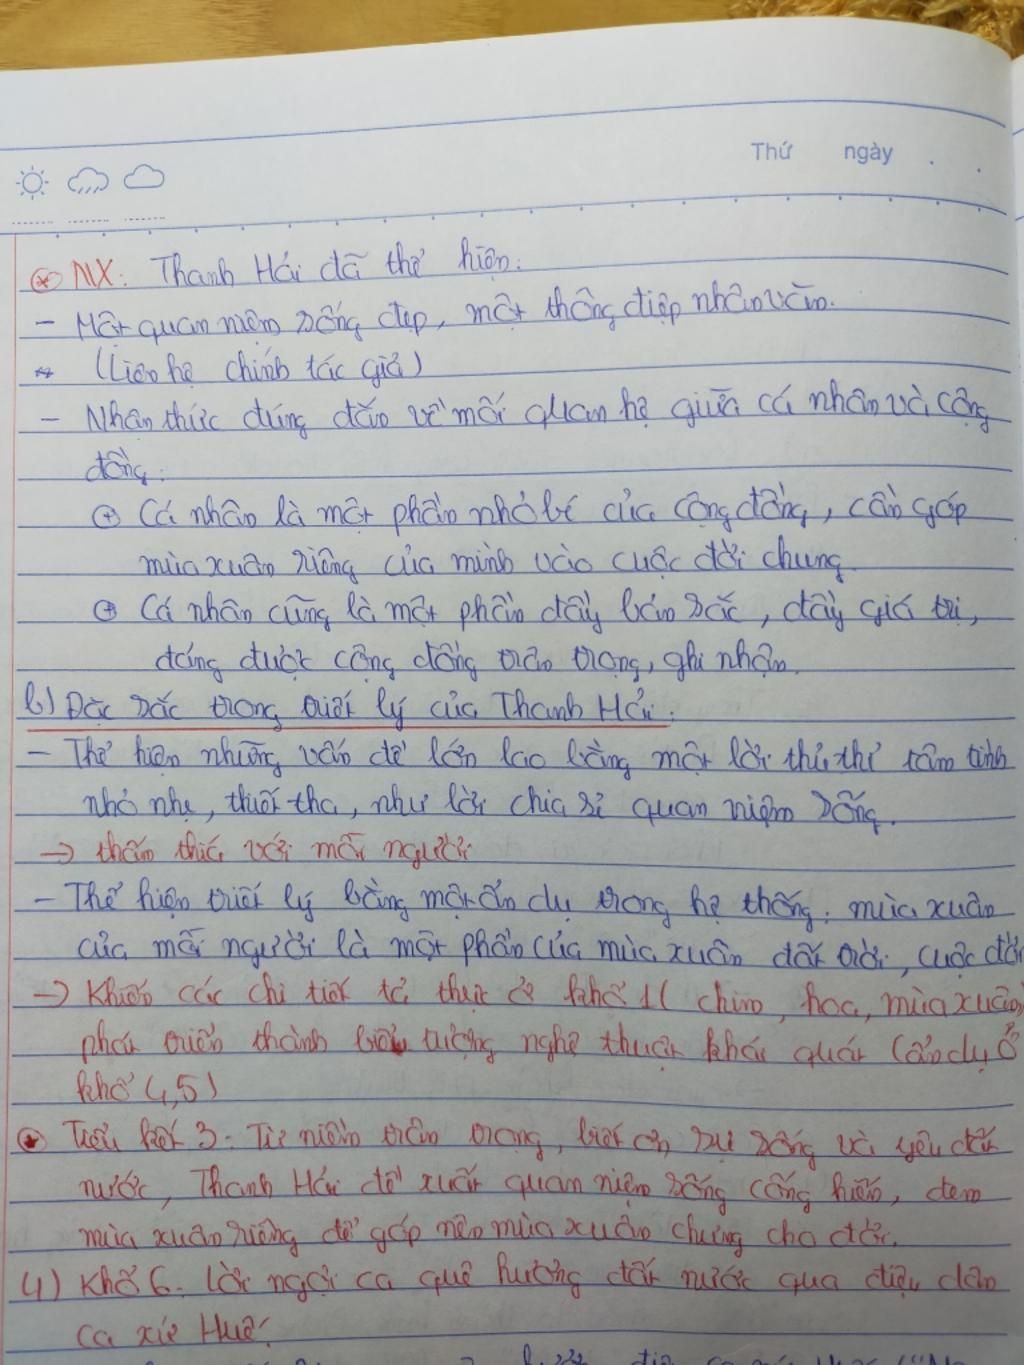 Thứ ngày . .
⊛ NX: Thanh Hải đã thể hiện:
- Một quan niệm sống đẹp, một thông điệp nhân văn.
(Liên hệ chính tác giả)
- Nhân thức đúng đắn về mối quan hệ giữa cá nhân và cộng
đồng:
⊕ Cá nhân là một phần nhỏ bé của cộng đồng, cần góp
mùa xuân riêng của mình vào cuộc đời chung.
⊕ Cá nhân cũng là một phần đầy bản sắc, đầy giá trị,
đáng được cộng đồng trân trọng, ghi nhận.
b) Đặc sắc trong triết lý của Thanh Hải:
- Thể hiện những vấn đề lớn lao bằng một lời thủ thỉ tâm tình
nhỏ nhẹ, thiết tha, như lời chia sẻ quan niệm sống.
→ thấm thía với mỗi người
- Thể hiện triết lý bằng một ẩn dụ trong hệ thống: mùa xuân
của mỗi người là một phần của mùa xuân đất trời, cuộc đời
→ Khiến các chi tiết tả thực ở khổ 1 ( chim, hoa, mùa xuân)
phát triển thành biểu tượng nghệ thuật khái quát (ẩn dụ ở
khổ 4,5)
⊛ Tiểu kết 3: Từ niềm trân trọng, biết ơn sự sống và yêu đất
nước, Thanh Hải đề xuất quan niệm sống cống hiến, đem
mùa xuân riêng để góp nên mùa xuân chung cho đời.
4) Khổ 6: Lời ngợi ca quê hương đất nước qua điệu dân
ca xứ Huế.